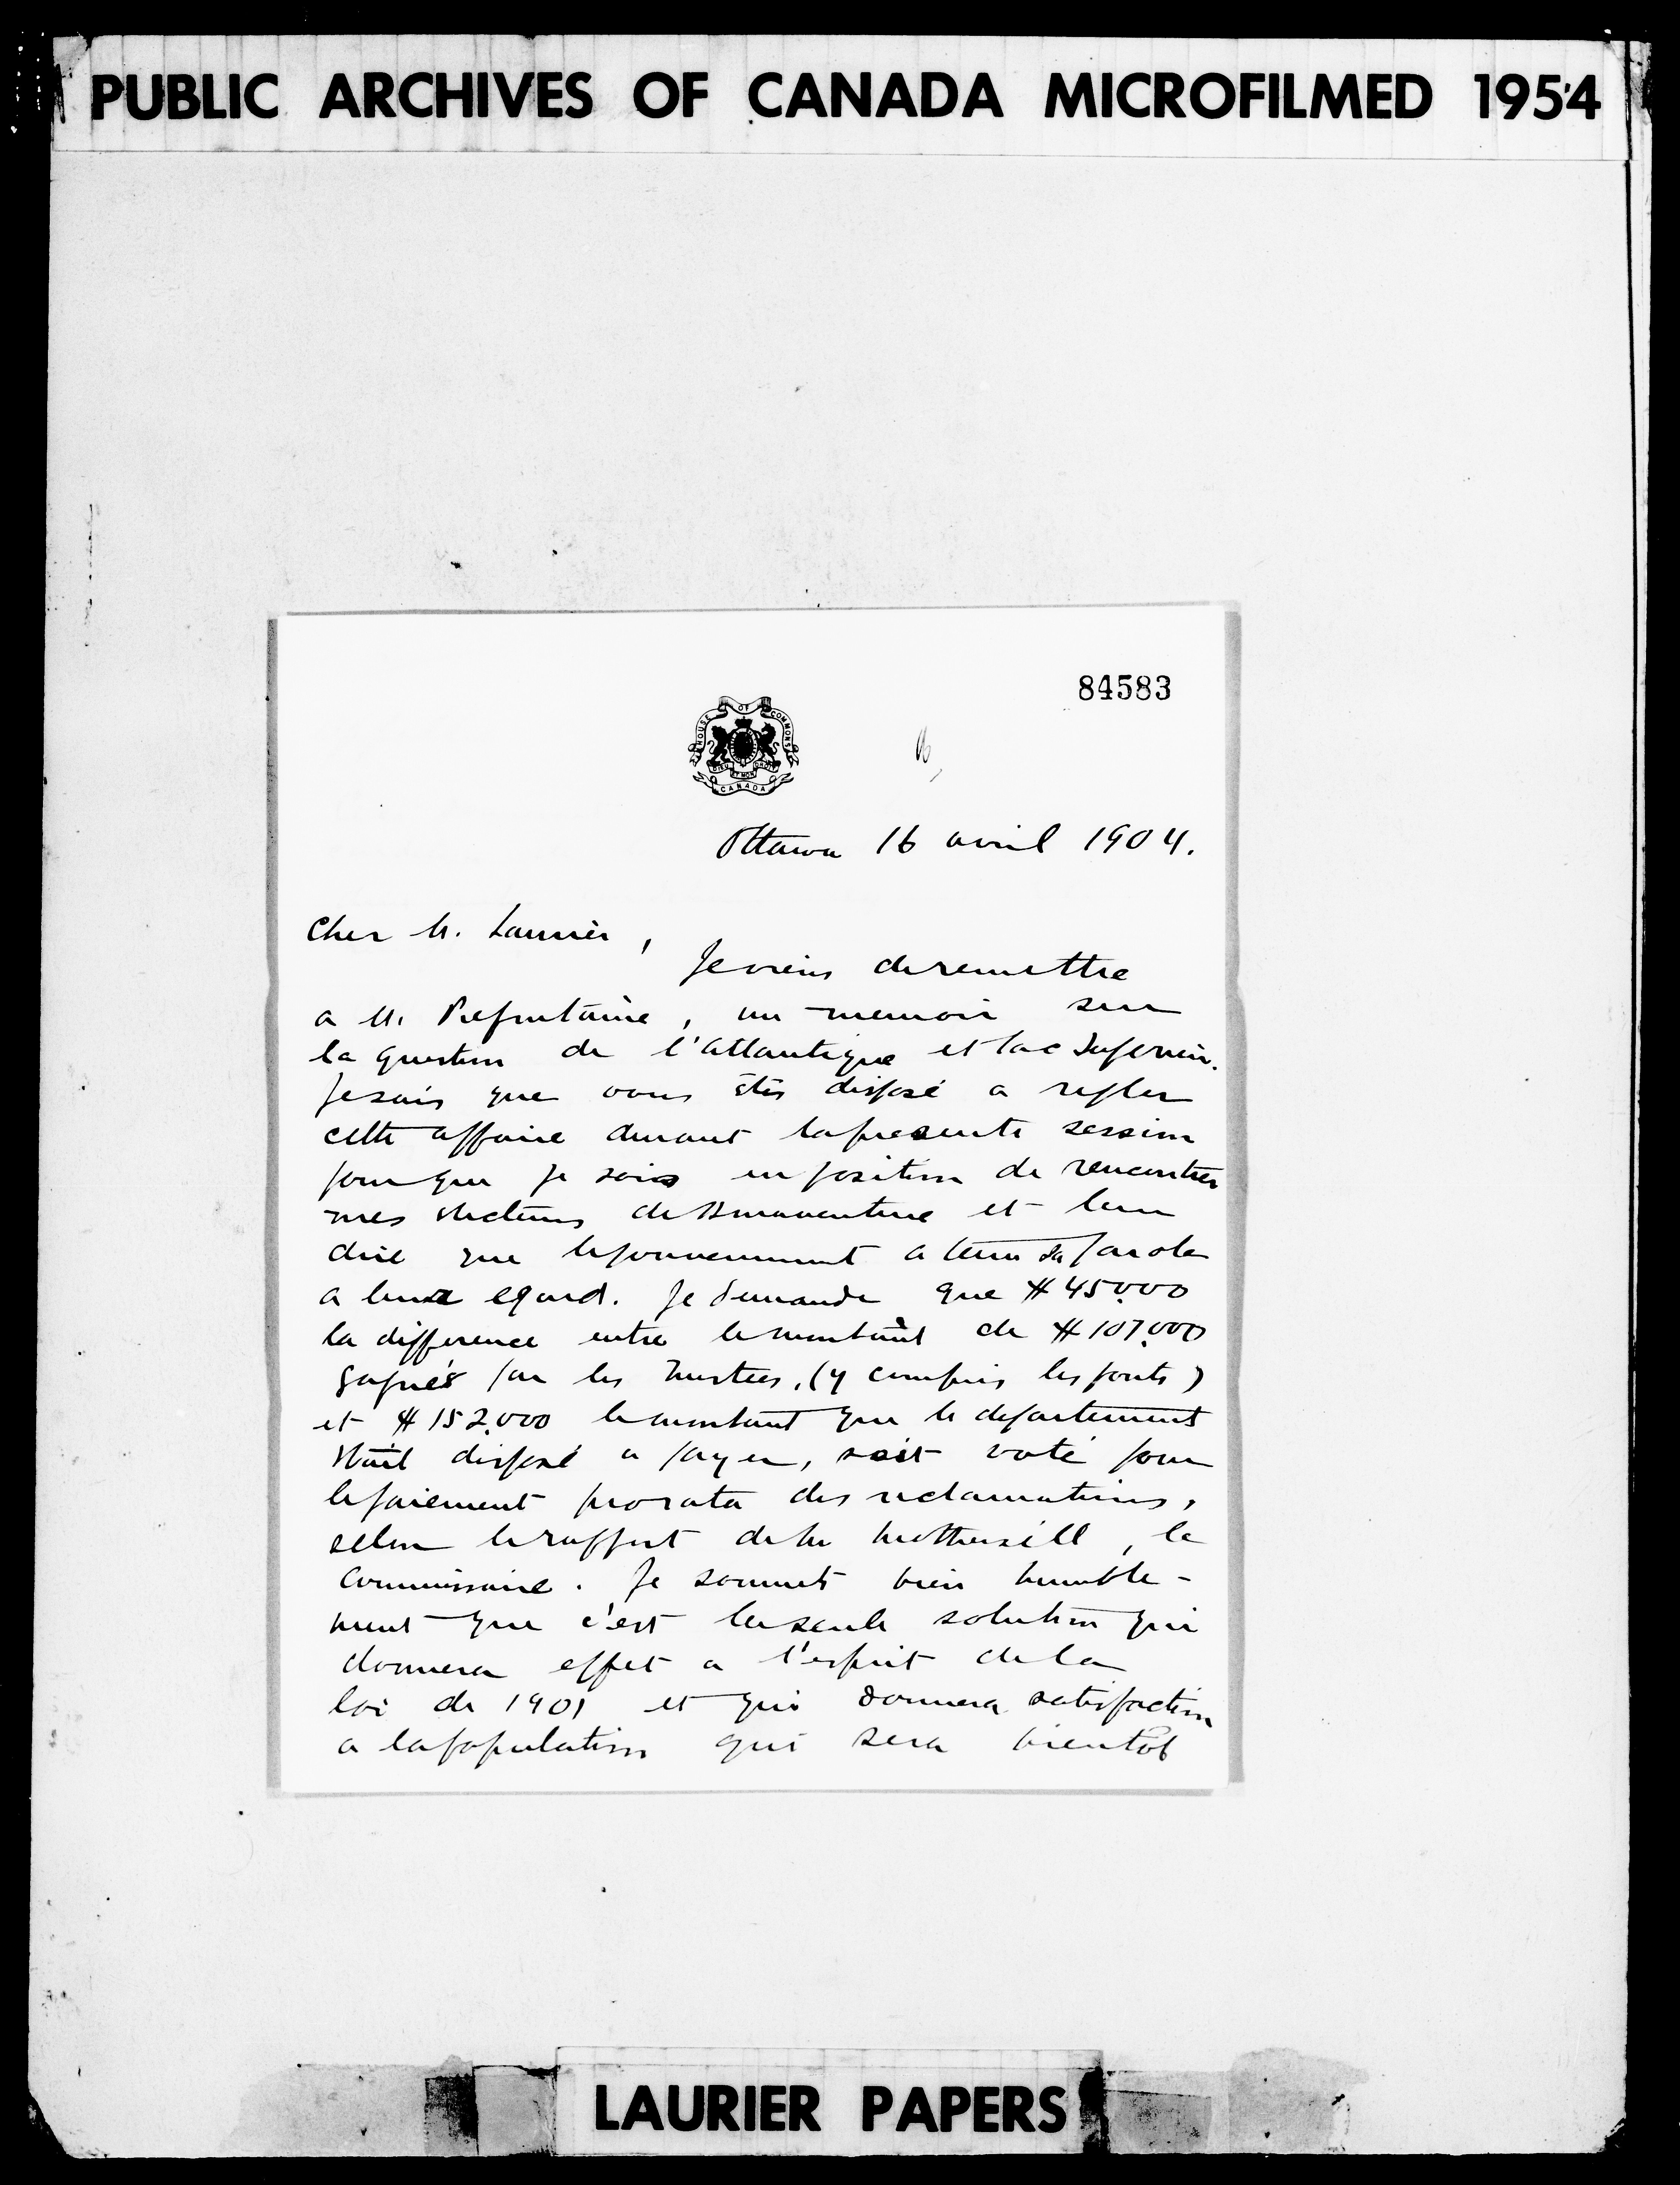 PUBLIC ARCHIVES OF CANADA MICROFILMED 1954
84583
HOUSE OF COMMONS
DIEU ET MON DROIT
CANADA
Ottawa 16 avril 1904.
Cher M. Laurier,
Je viens de remettre
a M. Prefontaine, un memoir sur
la question de l'atlantique et lac Superieur.
Je sais que vous êtes disposé a regler
cette affaire durant la presente session
pour que je sois en position de rencontrer
mes electeurs de Bonaventure et leur
dire que le gouvernement a tenu sa parole
a leur egard. Je demande que $45.000
la difference entre le montant de $107.000
gagnés par les Trustees, (y compris les ponts)
et $152.000 le montant que le departement
etait disposé a payer, soit voté pour
le paiement prorata des reclamations,
selon le rapport de M Mothersill, le
Commissaire. Je soumets bien humble-
ment que c'est la seule solution qui
donnera effet a l'esprit de la
loi de 1901 et qui donnera satisfaction
a la population qui sera bientot
LAURIER PAPERS